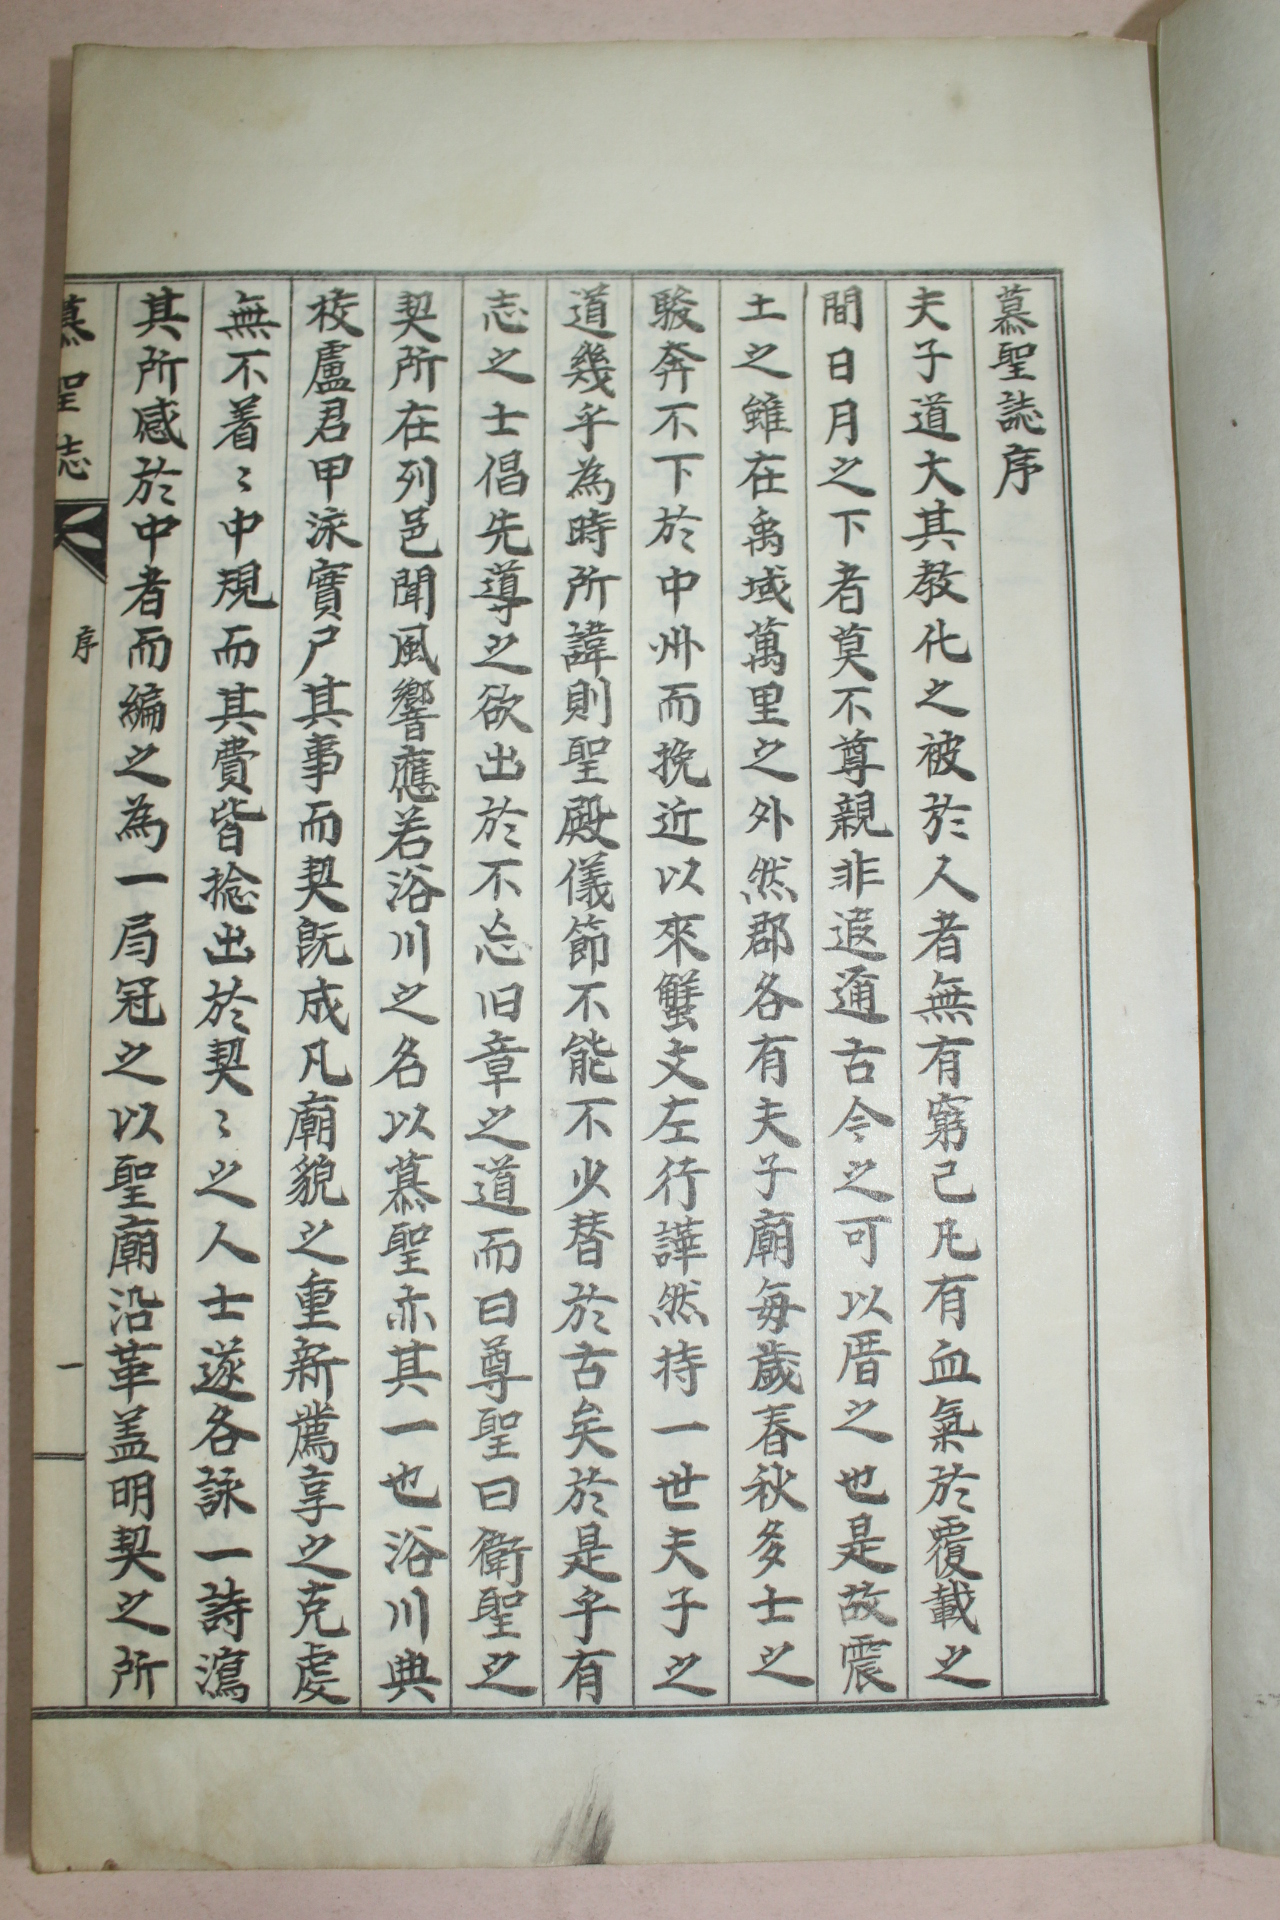 慕聖誌序
夫子道大其教化之被於人者無有窮已凡有血氣於覆載之
間日月之下者莫不尊親非遐邇古今之可以厝之也是故震
土之雖在禹域萬里之外然郡各有夫子廟每歲春秋多士之
駿奔不下於中州而挽近以來蟹文左行譁然持一世夫子之
道幾乎為時所諱則聖殿儀節不能不少替於古矣於是乎有
志之士倡先導之欲出於不忘旧章之道而曰尊聖曰衛聖之
契所在列邑聞風響應若浴川之名以慕聖亦其一也浴川典
校盧君甲泳實尸其事而契既成凡廟貌之重新薦享之克虔
無不着〻中規而其費皆捴出於契〻之人士遂各詠一詩瀉
其所感於中者而編之為一局冠之以聖廟沿革盖明契之所
慕聖誌　序　一